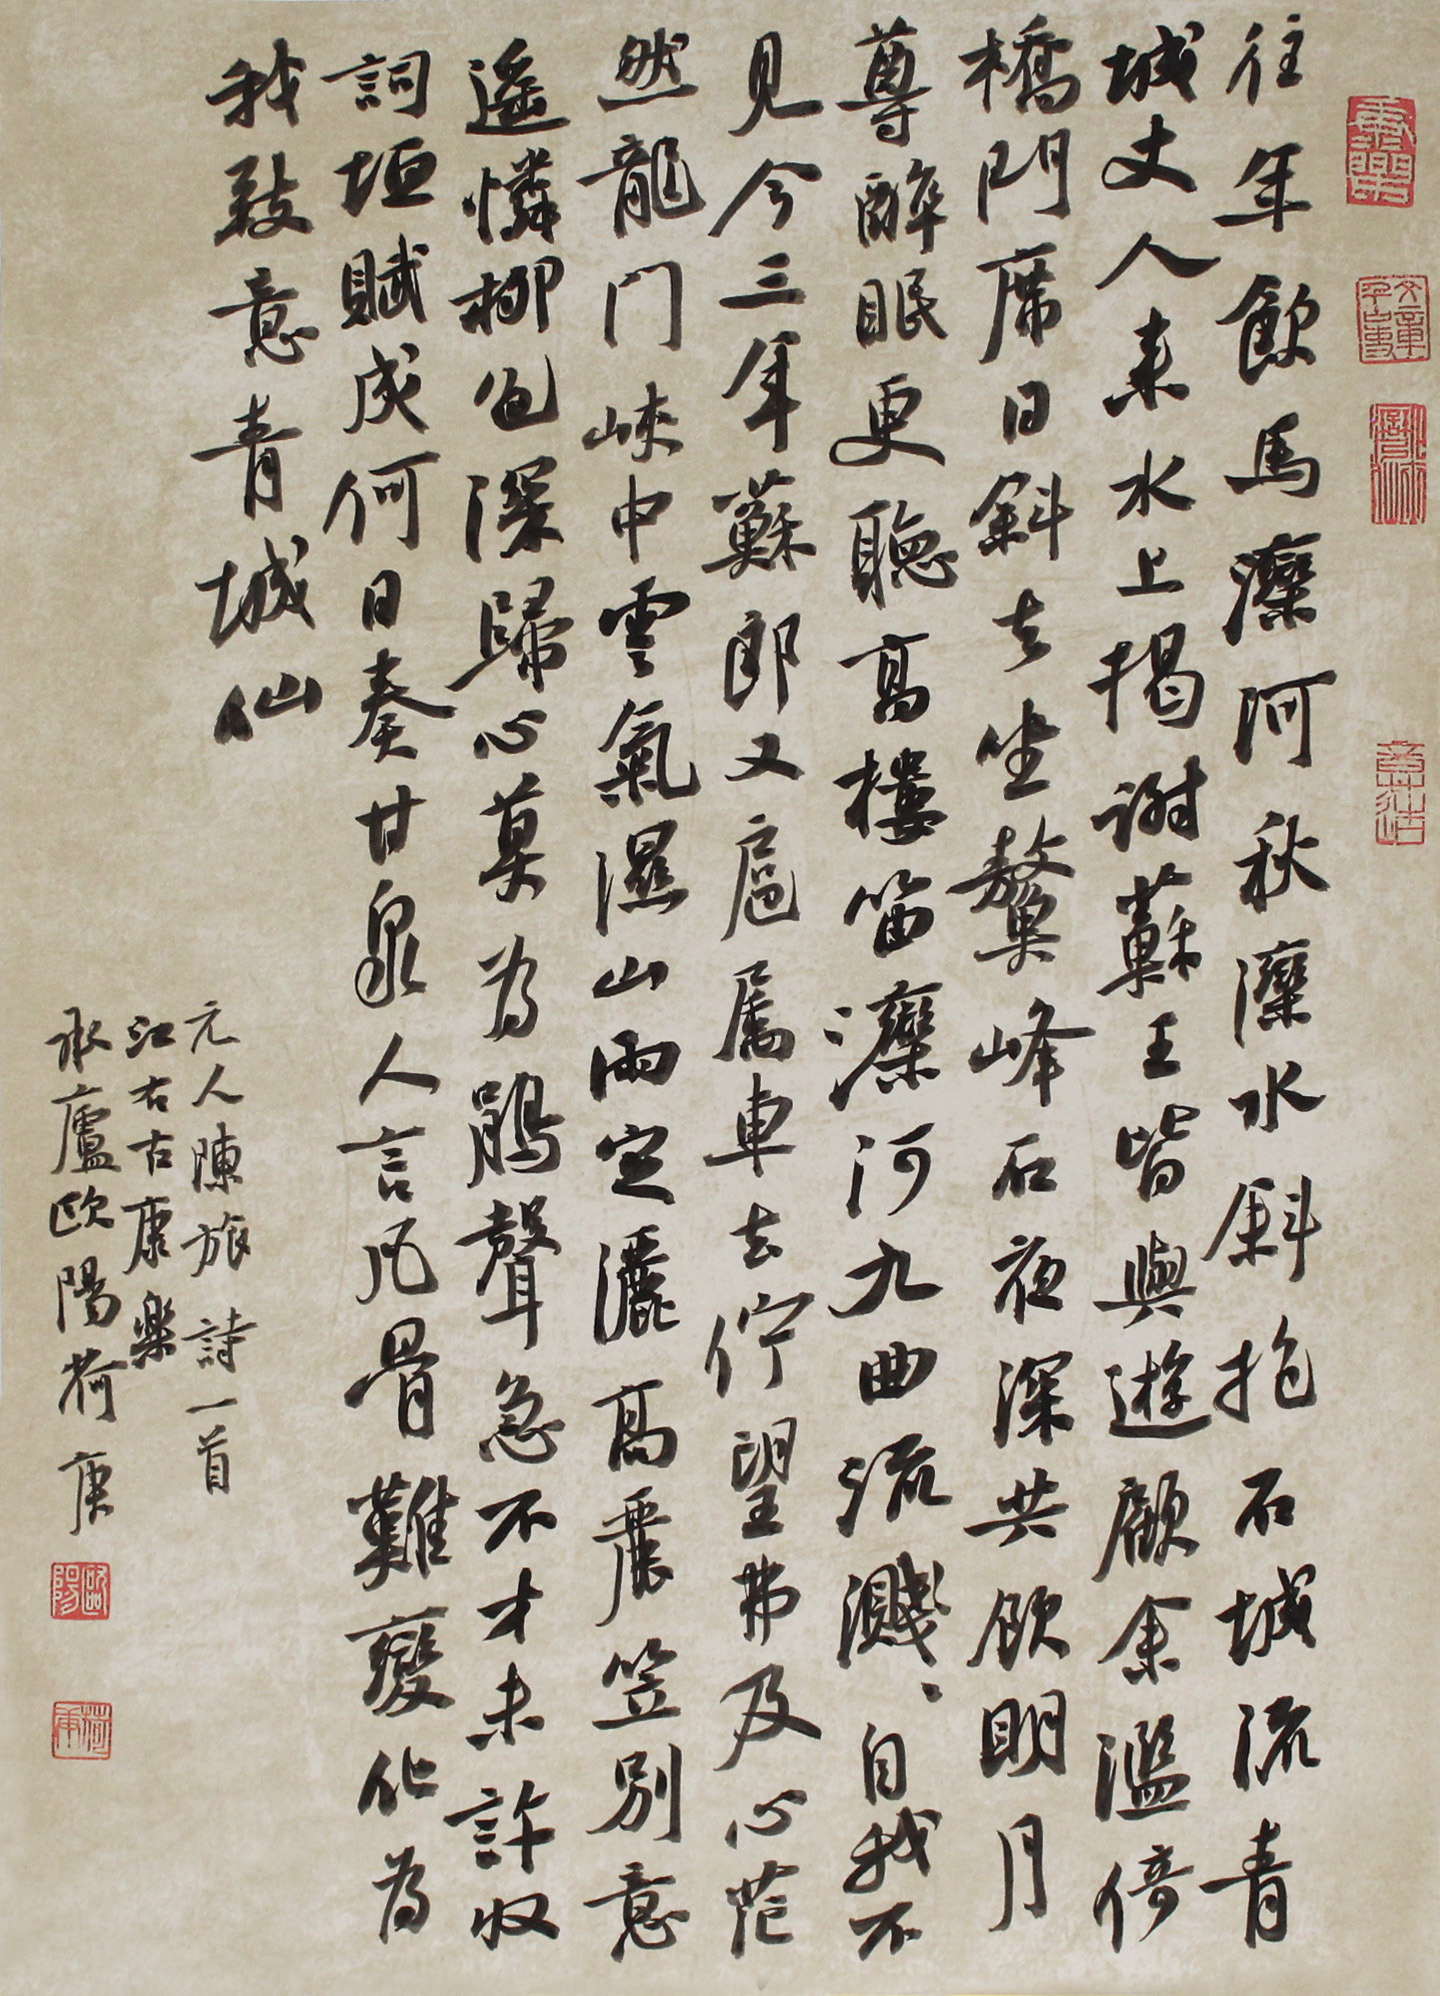 往年飲馬灤河秋灤水斜抱石城流青
城丈人來水上揭謝蘇王皆與遊顧余濫倚
橋門席日斜去坐鰲峰石夜深共飲明月
尊醉眠更聽高樓笛灤河九曲流濺、自我不
見今三年蘇郎又扈屬車去佇望弗及心茫
然龍门峽中雲氣濕山雨定灑高麗笠別意
遥憐柳色深歸心莫為鵑聲急不才未許收
詞垣賦成何日奏甘泉人言凡骨難變化為
我致意青城仙
元人陳旅詩一首
江右古康樂
承廬歐陽荷庚
康樂
文章千古事
歐陽
荷庚